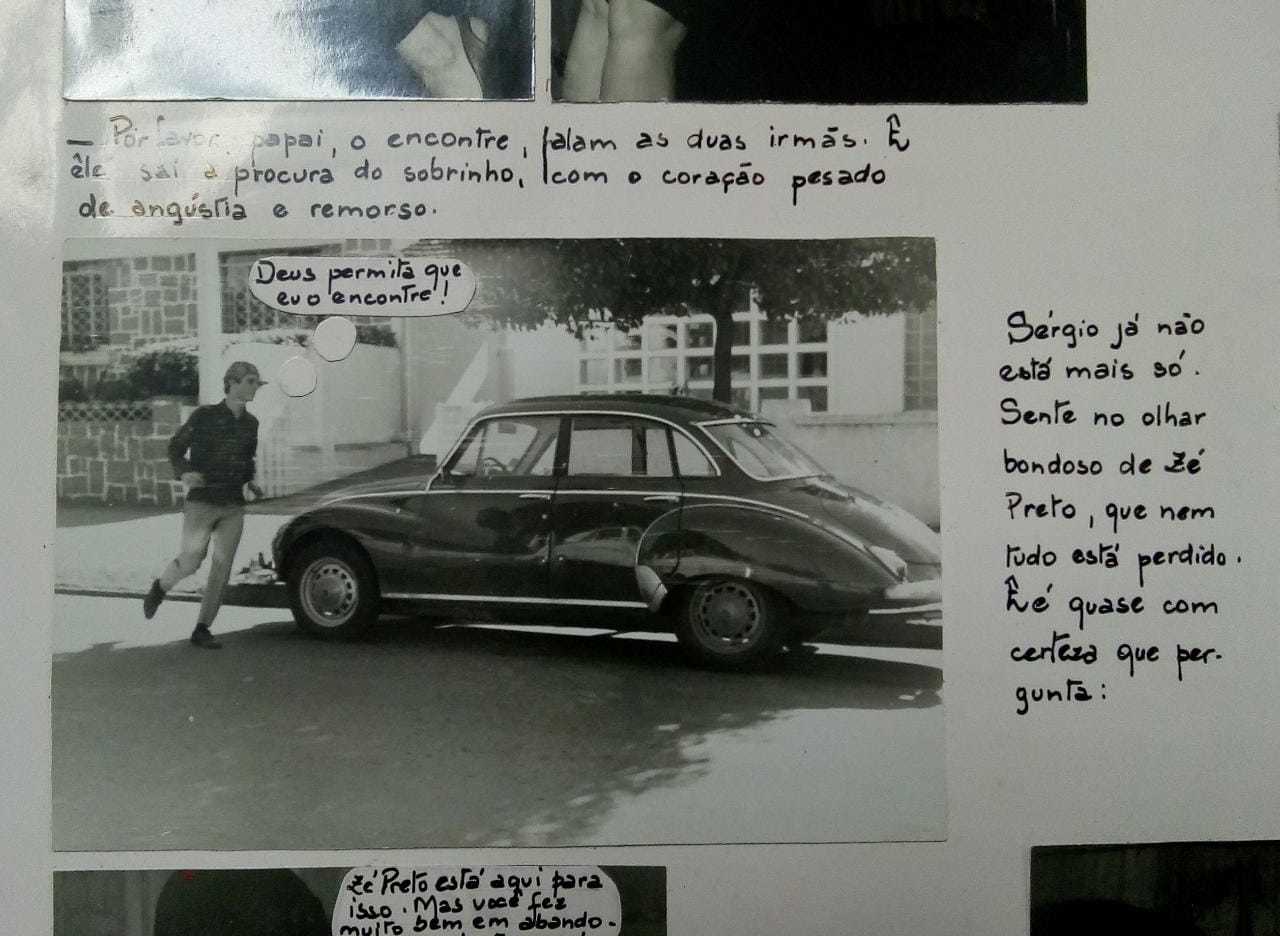 — Por favor, papai, o encontre, falam as duas irmãs. E
êle sai a procura do sobrinho, com o coração pesado
de angústia e remorso.
Deus permita que
eu o encontre!
Sérgio já não
está mais só.
Sente no olhar
bondoso de Zé
Preto, que nem
tudo está perdido.
E é quase com
certeza que per-
gunta:
Zé Preto está aqui para
isso. Mas você fez
muito bem em abando-